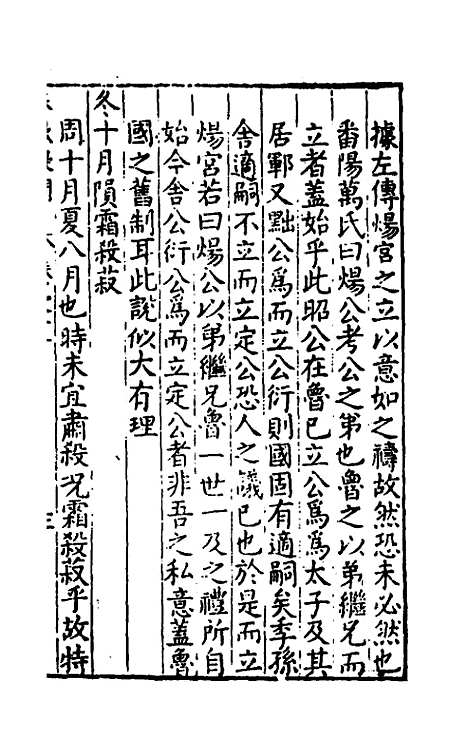 據左傳煬宮之立以意如之禱故然恐未必然也
番陽萬氏曰煬公考公之弟也魯之以弟繼兄而
立者蓋始乎此昭公在魯已立公爲爲太子及其
居鄆又黜公爲而立公衍則國固有適嗣矣季孫
舍適嗣不立而立定公恐人之議已也於是而立
煬宮若曰煬公以弟繼兄魯一世一及之禮所自
始今舍公衍公爲而立定公者非吾之私意蓋魯
國之舊制耳此說似大有理
冬十月隕霜殺菽
周十月夏八月也時未宜肅殺况霜殺菽乎故特